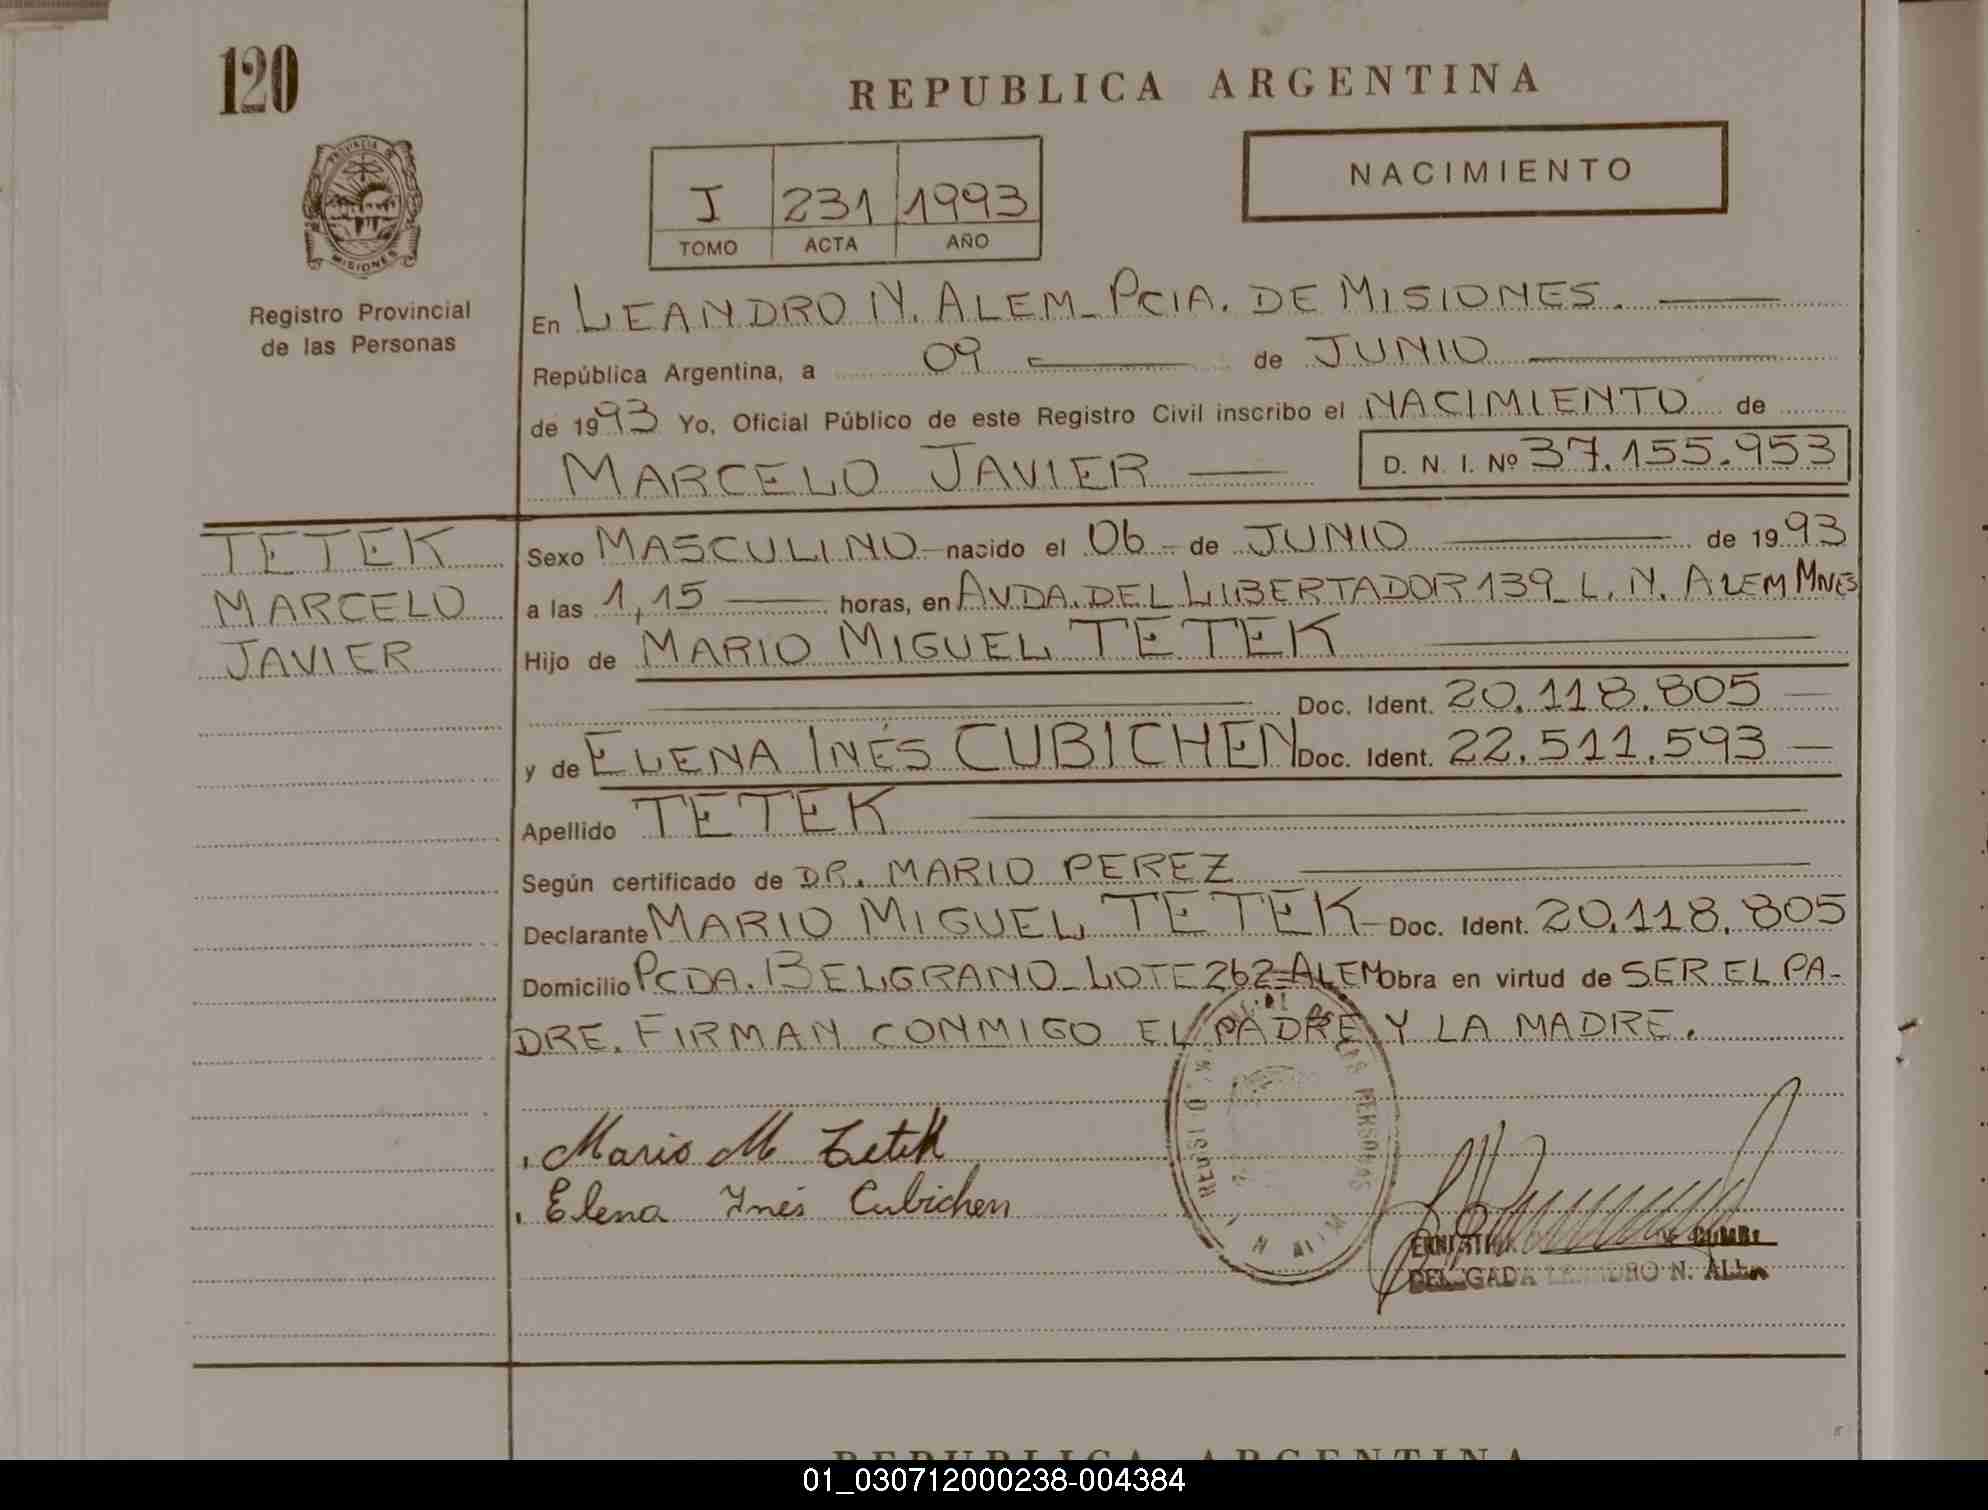 120
REPUBLICA ARGENTINA
PROVINCIA DE
MISIONES
Registro Provincial
de las Personas
I 231 1993
TOMO ACTA AÑO
NACIMIENTO
En LEANDRO N. ALEM_PCIA. DE MISIONES.
República Argentina, a 09 de JUNIO
de 1993 Yo, Oficial Público de este Registro Civil inscribo el NACIMIENTO de
MARCELO JAVIER D. N. I. Nº 37.155.953
TETEK
MARCELO
JAVIER
Sexo MASCULINO nacido el 06 de JUNIO de 1993
a las 1,15 horas, en AVDA. DEL LIBERTADOR 139_L. N. ALEM MNES
Hijo de MARIO MIGUEL TETEK
Doc. Ident. 20.118.805
y de ELENA INÉS CUBICHEN Doc. Ident. 22.511.593
Apellido TETEK
Según certificado de DR. MARIO PEREZ
Declarante MARIO MIGUEL TETEK Doc. Ident. 20.118.805
Domicilio PCDA. BELGRANO_LOTE 262=ALEM obra en virtud de SER EL PA-
DRE. FIRMAN CONMIGO EL PADRE Y LA MADRE.
Mario M Tetek
Elena Inés Cubichen
LAS PERSONAS
DELEGADA LEANDRO N. ALEM
REPUBLICA ARGENTINA
01_030712000238-004384